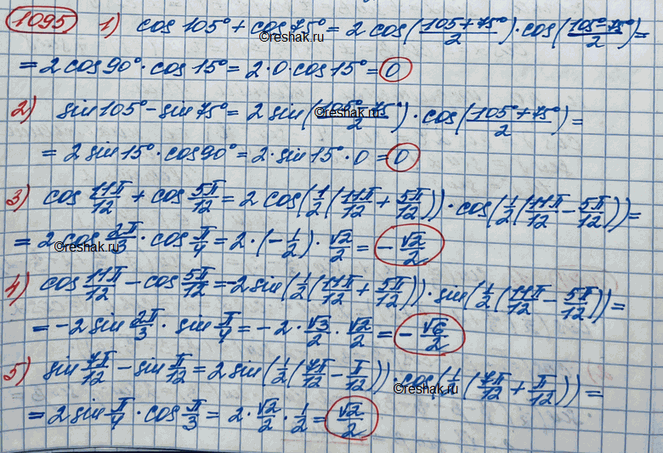 1095 1) cos 105° + cos 75° = 2 cos(\frac{105+75°}{2}) · cos(\frac{105°-75°}{2}) =
= 2 cos 90° · cos 15° = 2 · 0 · cos 15° = 0
2) sin 105° - sin 75° = 2 sin(\frac{105°-75°}{2}) · cos(\frac{105°+75°}{2}) =
= 2 sin 15° · cos 90° = 2 · sin 15° · 0 = 0
3) cos \frac{11π}{12} + cos \frac{5π}{12} = 2 cos(\frac{1}{2}(\frac{11π}{12} + \frac{5π}{12})) · cos(\frac{1}{2}(\frac{11π}{12} - \frac{5π}{12})) =
= 2 cos \frac{2π}{3} · cos \frac{π}{4} = 2 · (-\frac{1}{2}) · \frac{√2}{2} = -\frac{√2}{2}
4) cos \frac{11π}{12} - cos \frac{5π}{12} = -2 sin(\frac{1}{2}(\frac{11π}{12} + \frac{5π}{12})) · sin(\frac{1}{2}(\frac{11π}{12} - \frac{5π}{12})) =
= -2 sin \frac{2π}{3} · sin \frac{π}{4} = -2 · \frac{√3}{2} · \frac{√2}{2} = -\frac{√6}{2}
5) sin \frac{7π}{12} - sin \frac{π}{12} = 2 sin(\frac{1}{2}(\frac{7π}{12} - \frac{π}{12})) · cos(\frac{1}{2}(\frac{7π}{12} + \frac{π}{12})) =
= 2 sin \frac{π}{4} · cos \frac{π}{3} = 2 · \frac{√2}{2} · \frac{1}{2} = \frac{√2}{2}
©reshak.ru
©reshak.ru
©reshak.ru
©reshak.ru